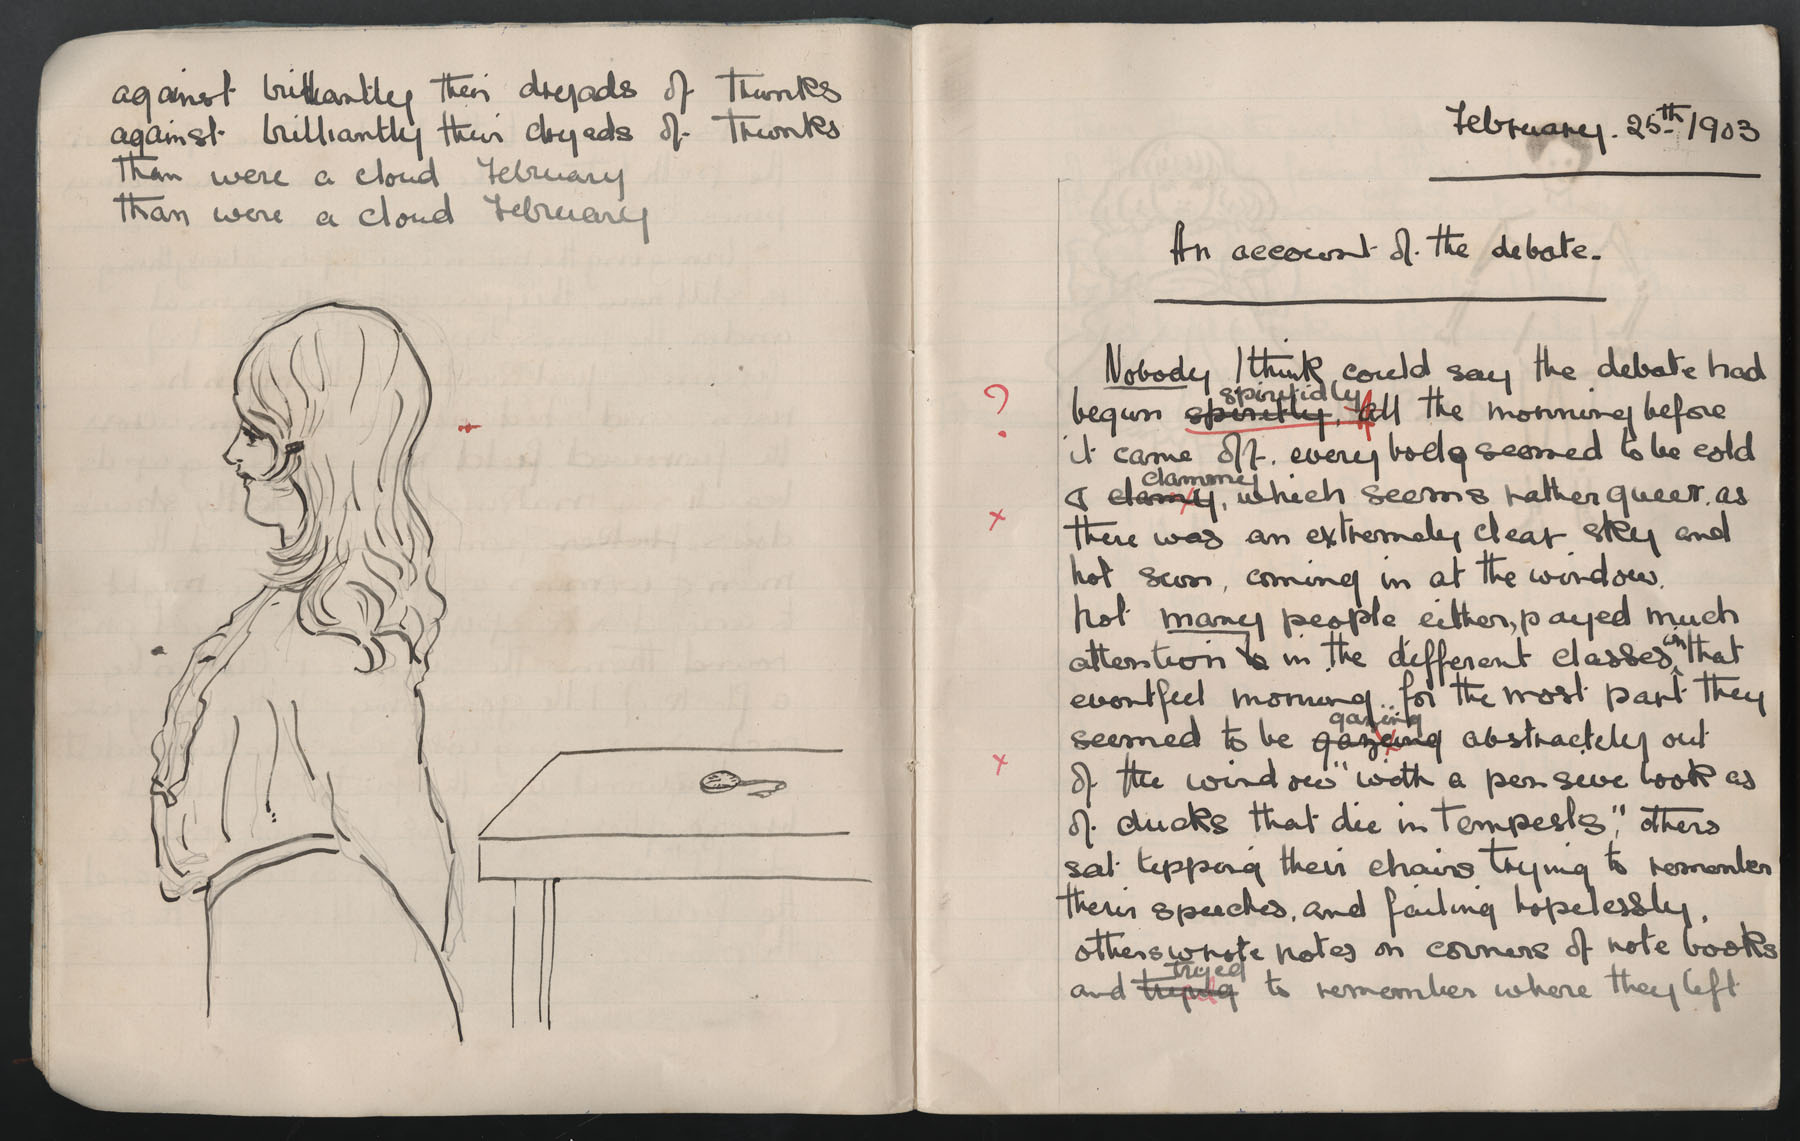 against brilliantly their dryads of Trunks
against brilliantly their dryads of Trunks
Than were a cloud February
Than were a cloud February
February. 25th 1903
An account of the debate.
Nobody I think could say the debate had
spiritidly
begun spiritly, All the morning before
it came off. every body seemed to be cold
clammy
& clamy, which seems rather queer. as
there was an extremely clear sky and
hot sun, coming in at the window.
not many people either, payed much
attention in the different classes on that
eventful morning.. for the most part they
gazing
seemed to be gazeing abstractely out
of the window "with a pensive look as
of ducks that die in Tempests", others
sat tipping their chairs trying to remember
their speeches, and failing hopelessly,
others wrote notes on corners of note books
tryed
and trying to remember where they left